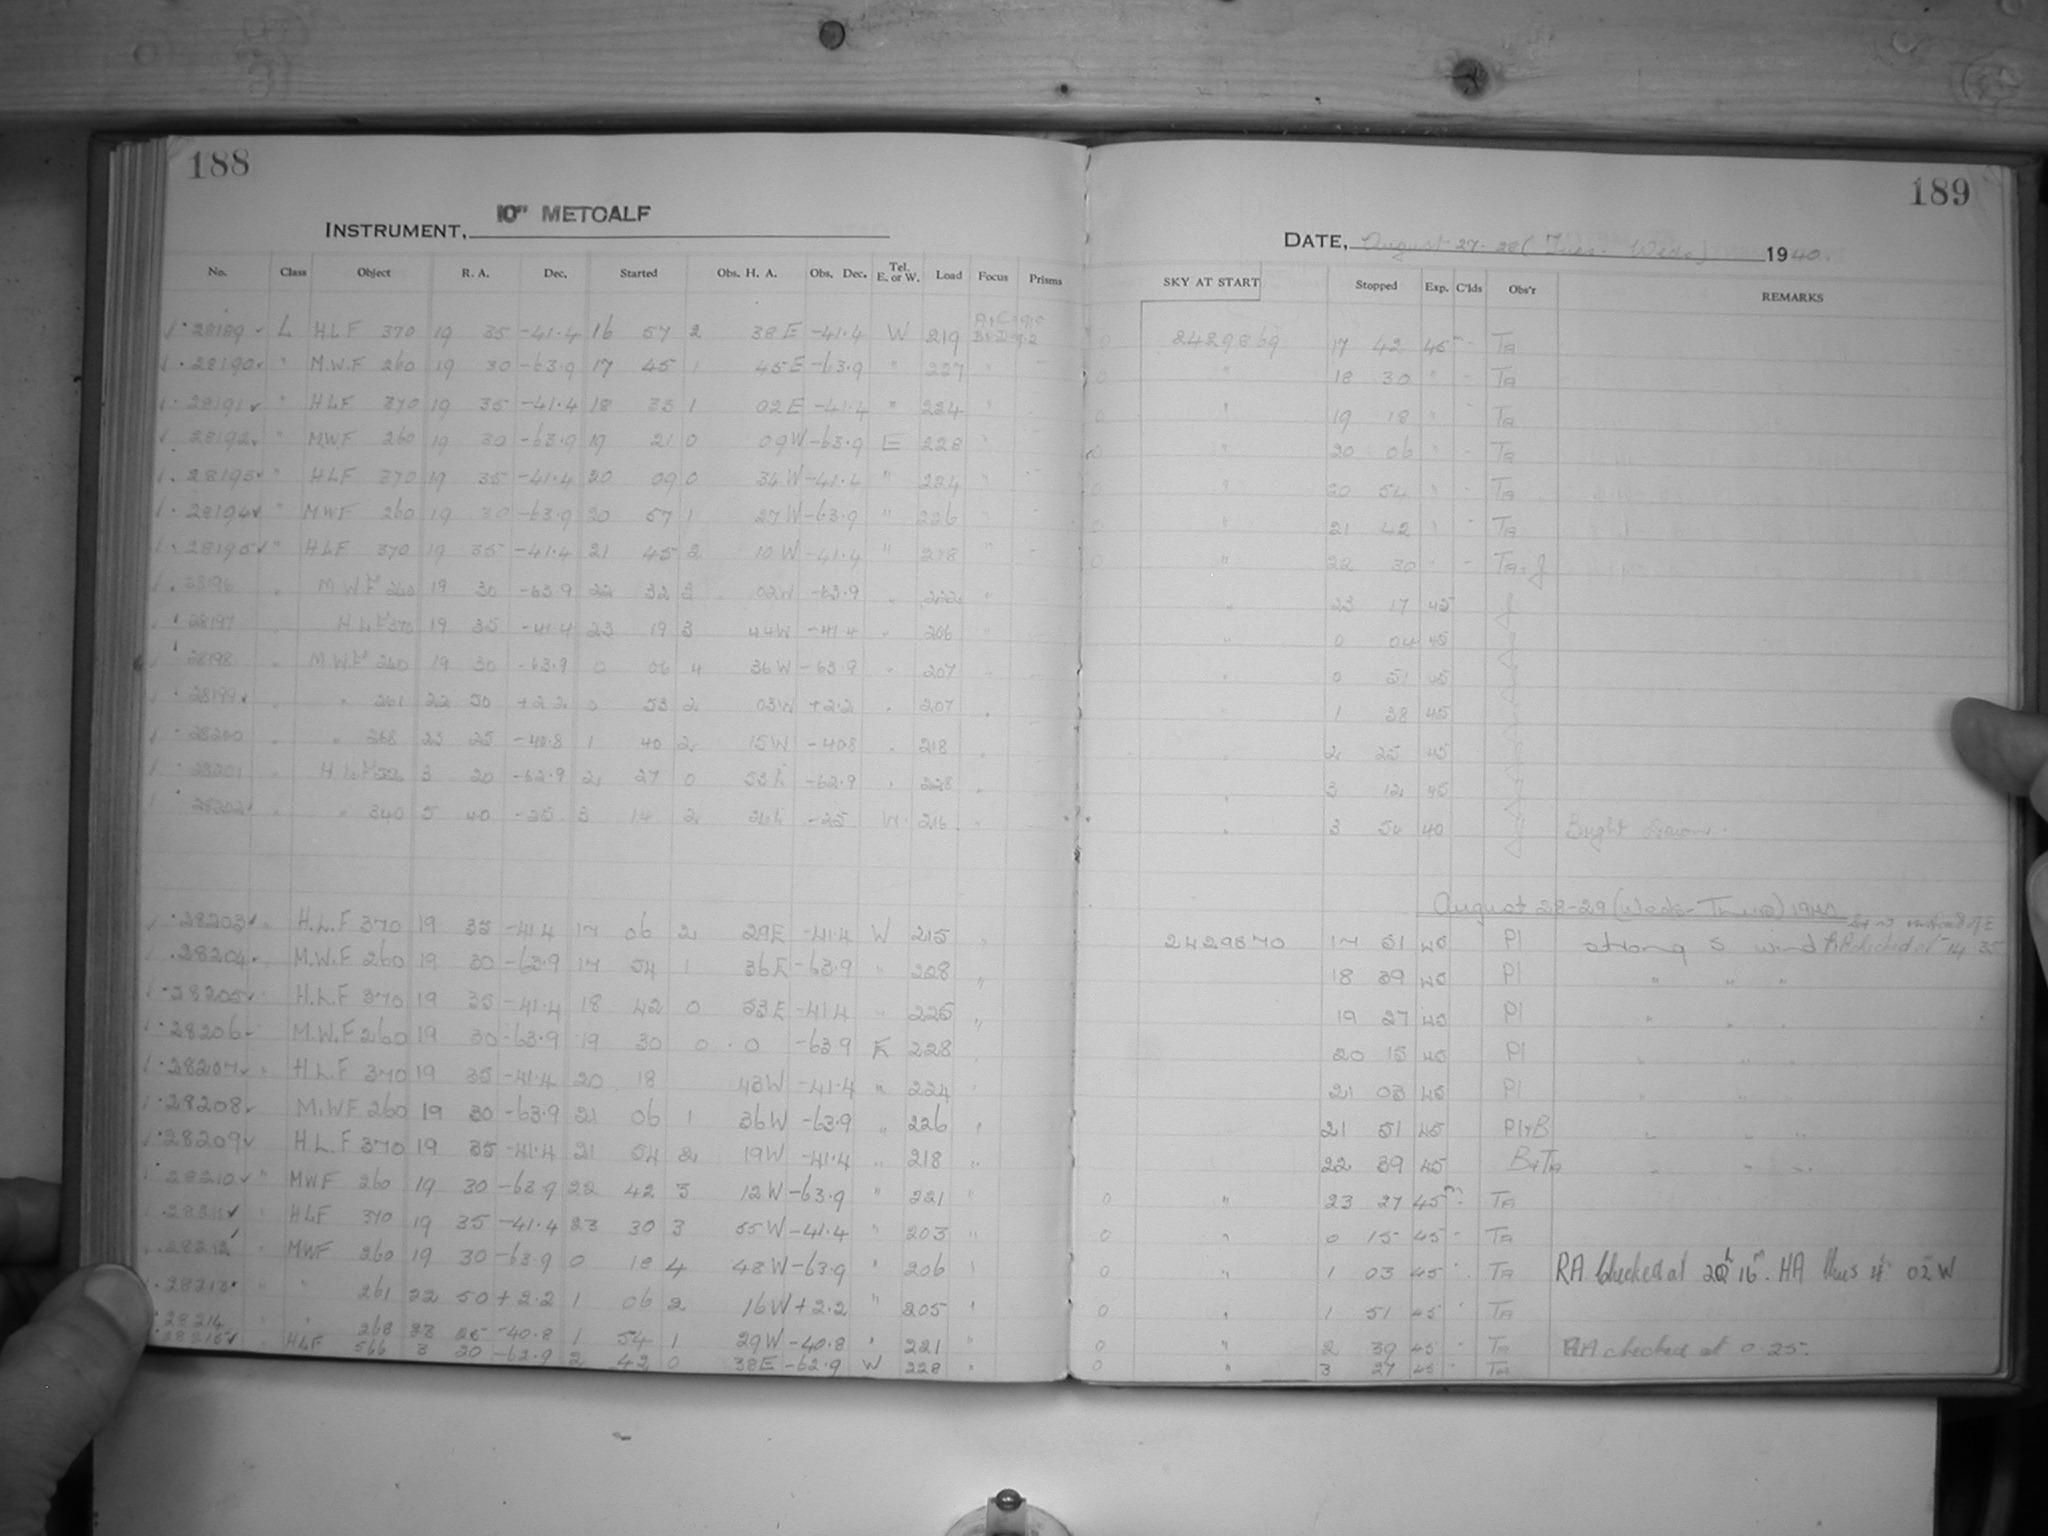 188
INSTRUMENT, 10" METCALF
No. Class Object R. A. Dec. Started Obs. H. A. Obs. Dec. Tel. E. or W. Load Focus Prisms
28189 L HLF 370 19 35 -41.4 16 57 2 38 E -41.4 W 219
28190 " M.W.F 260 19 30 -63.9 17 45 1 45 E -63.9 " 227 "
28191 " HLF 370 19 35 -41.4 18 33 1 02 E -41.4 " 224 "
28192 " MWF 260 19 30 -63.9 19 21 0 09 W -63.9 E 228 "
28193 " HLF 370 19 35 -41.4 20 09 0 34 W -41.4 " 224 "
28194 " MWF 260 19 30 -63.9 20 57 1 27 W -63.9 " 226 "
28195 " HLF 370 19 35 -41.4 21 45 2 10 W -41.4 " 218 "
28196 M.W.F 260 19 30 -63.9 22 32 3 02 W -63.9 222
28197 H.L.F 370 19 35 -41.4 23 19 3 44 W -41.4 206
28198 M.W.F 260 19 30 -63.9 0 06 4 36 W -63.9 207
28199 " 261 22 50 +2.2 0 53 2 03 W +2.2 207
28200 " 268 23 25 -40.8 1 40 2 15 W -40.8 218
28201 H.L.F 3 20 -62.9 2 27 0 53 E -62.9 228
28202 " 340 5 40 -25 3 14 2 -25 W 216
28203 H.L.F 370 19 35 -41.4 17 06 2 29 E -41.4 W 215 "
28204 M.W.F 260 19 30 -63.9 17 54 1 36 E -63.9 " 228 "
28205 H.L.F 370 19 35 -41.4 18 42 0 53 E -41.4 " 225 "
28206 M.W.F 260 19 30 -63.9 19 30 0 0 -63.9 E 228
28207 H.L.F 370 19 35 -41.4 20 18 43 W -41.4 " 224
28208 M.W.F 260 19 30 -63.9 21 06 1 36 W -63.9 " 226
28209 H.L.F 370 19 35 -41.4 21 54 2 19 W -41.4 " 218 "
28210 " MWF 260 19 30 -63.9 22 42 3 12 W -63.9 " 221 "
28211 HLF 370 19 35 -41.4 23 30 3 55 W -41.4 " 203 "
28212 MWF 260 19 30 -63.9 0 18 4 48 W -63.9 " 206 "
28213 " " 261 22 50 +2.2 1 06 2 16 W +2.2 " 205 "
28214 " 268 23 25 -40.8 1 54 1 29 W -40.8 " 221 "
28215 HLF 566 3 20 -62.9 2 42 0 38 E -62.9 W 228 "
189
DATE, August 27-28 (Tues- Weds) 1940
SKY AT START Stopped Exp. C'lds Obs'r REMARKS
0 2429869 17 42 45m - TA
0 " 18 30 " - TA
0 " 19 18 " - TA
0 " 20 06 " - TA
0 " 20 54 " - TA
0 " 21 42 " - TA
0 " 22 30 " - TA
" 23 17 45
" 0 04 45
" 0 51 45
1 38 45
2 25 45
3 12 45
3 54 40 Bright
August 28-29 (Weds-Thurs) 1940
2429870 17 51 45 Pl strong S wind
18 39 45 Pl " " "
19 27 45 Pl " " "
20 15 45 Pl " " "
21 03 45 Pl " "
21 51 45 Pl+B " " "
22 39 45 B+TA " " "
0 " 23 27 45m - TA
0 " 0 15 45 - TA
0 " 1 03 45 TA RA checked at 20h 16m. HA thus 4h 02 W
0 " 1 51 45 TA
0 " 2 39 45 TA RA checked at 0.25.
0 " 3 27 45 TA